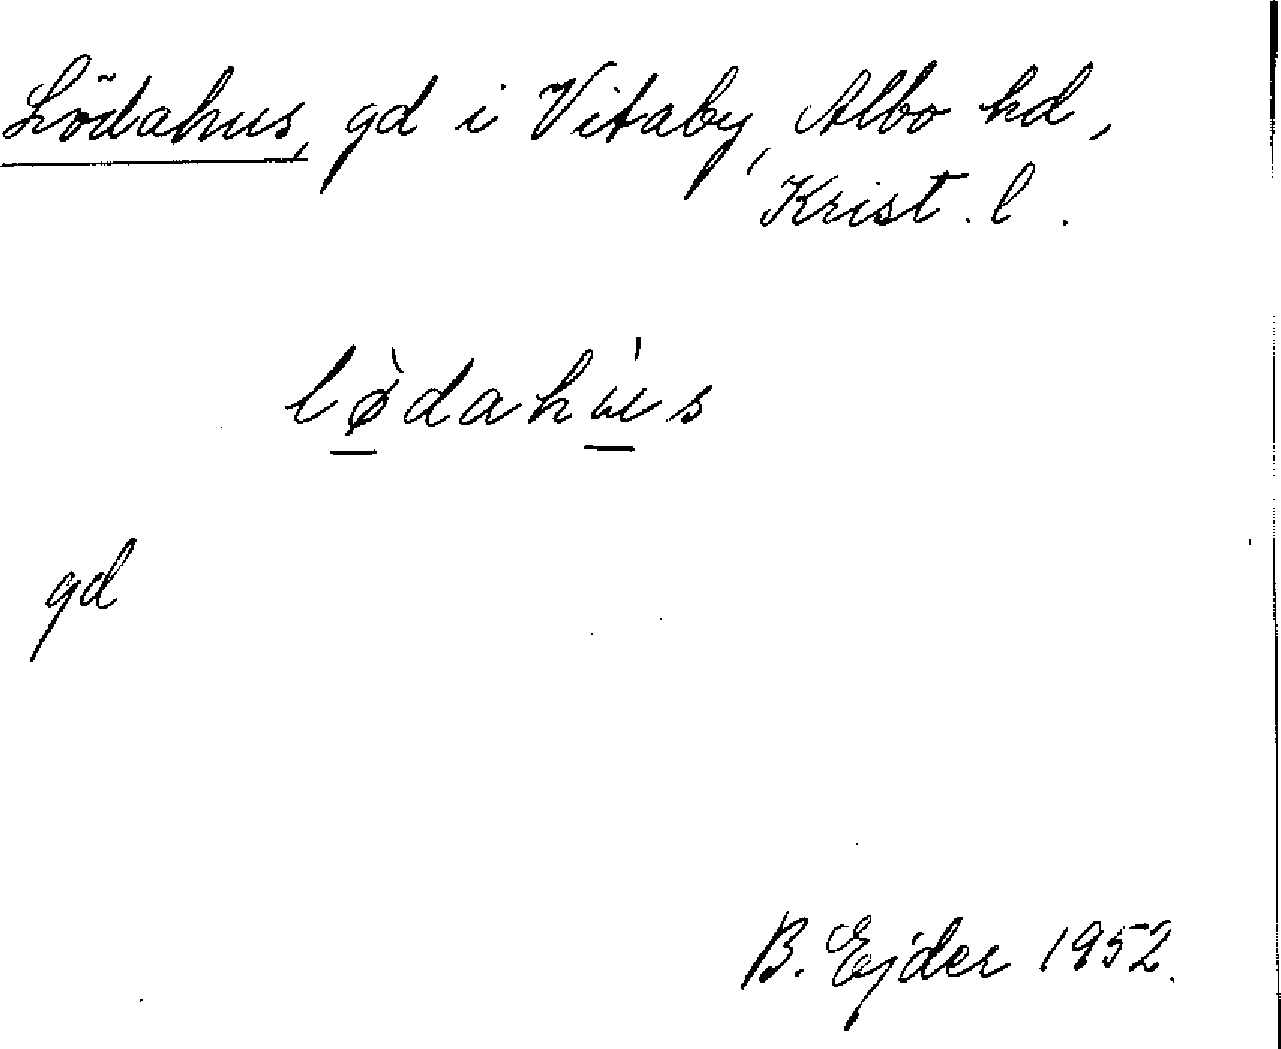 Lödahus, gd i Vitaby, Albo hd,
Krist. l.
lø̀dahu̍s
gd
B. Ejder 1952.